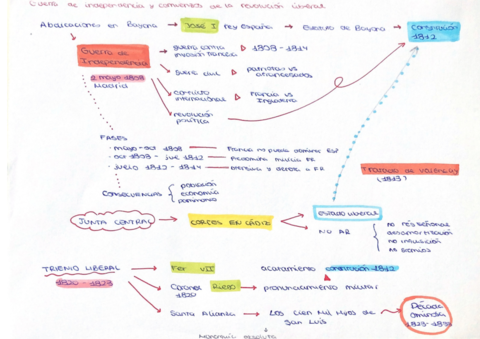 Guerra de independencia y comienzos de la revolución liberal
Abdicaciones en Bayona → José I rey España → Estatuto de Bayona → Constitución 1812
Guerra de Independencia
2 mayo 1808
Madrid
guerra contra invasión francesa ▷ 1808 - 1814
guerra civil ▷ patriotas vs afrancesados
conflicto internacional ▷ Francia vs Inglaterra
revolución política
FASES
· mayo - oct 1808 — Francia no puede dominar ESP
· oct 1808 - jul 1812 —
· julio 1812 - 1814 — ofensiva y FR
Tratado de Valençay
(1813)
CONSECUENCIAS
población
economía
patrimonio
JUNTA CENTRAL → CORTES EN CÁDIZ
estado liberal
NO AR
no rég señorial
desamortización
no inquisición
no gremios
TRIENIO LIBERAL
1820 - 1823
Fer VII acatamiento constitución 1812
Coronel Riego → pronunciamiento militar
1820
Santa Alianza → Los Cien Mil Hijos de San Luis
Década ominosa
1823-1833
Monarquía absoluta